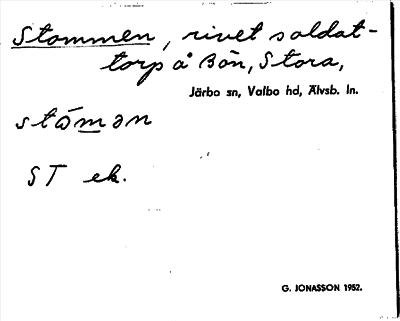 Stommen, rivet soldat-
torp å Bön, Stora,
Järbo sn, Valbo hd, Älvsb. ln.
ståmən
ST ek.
G. JONASSON 1952.